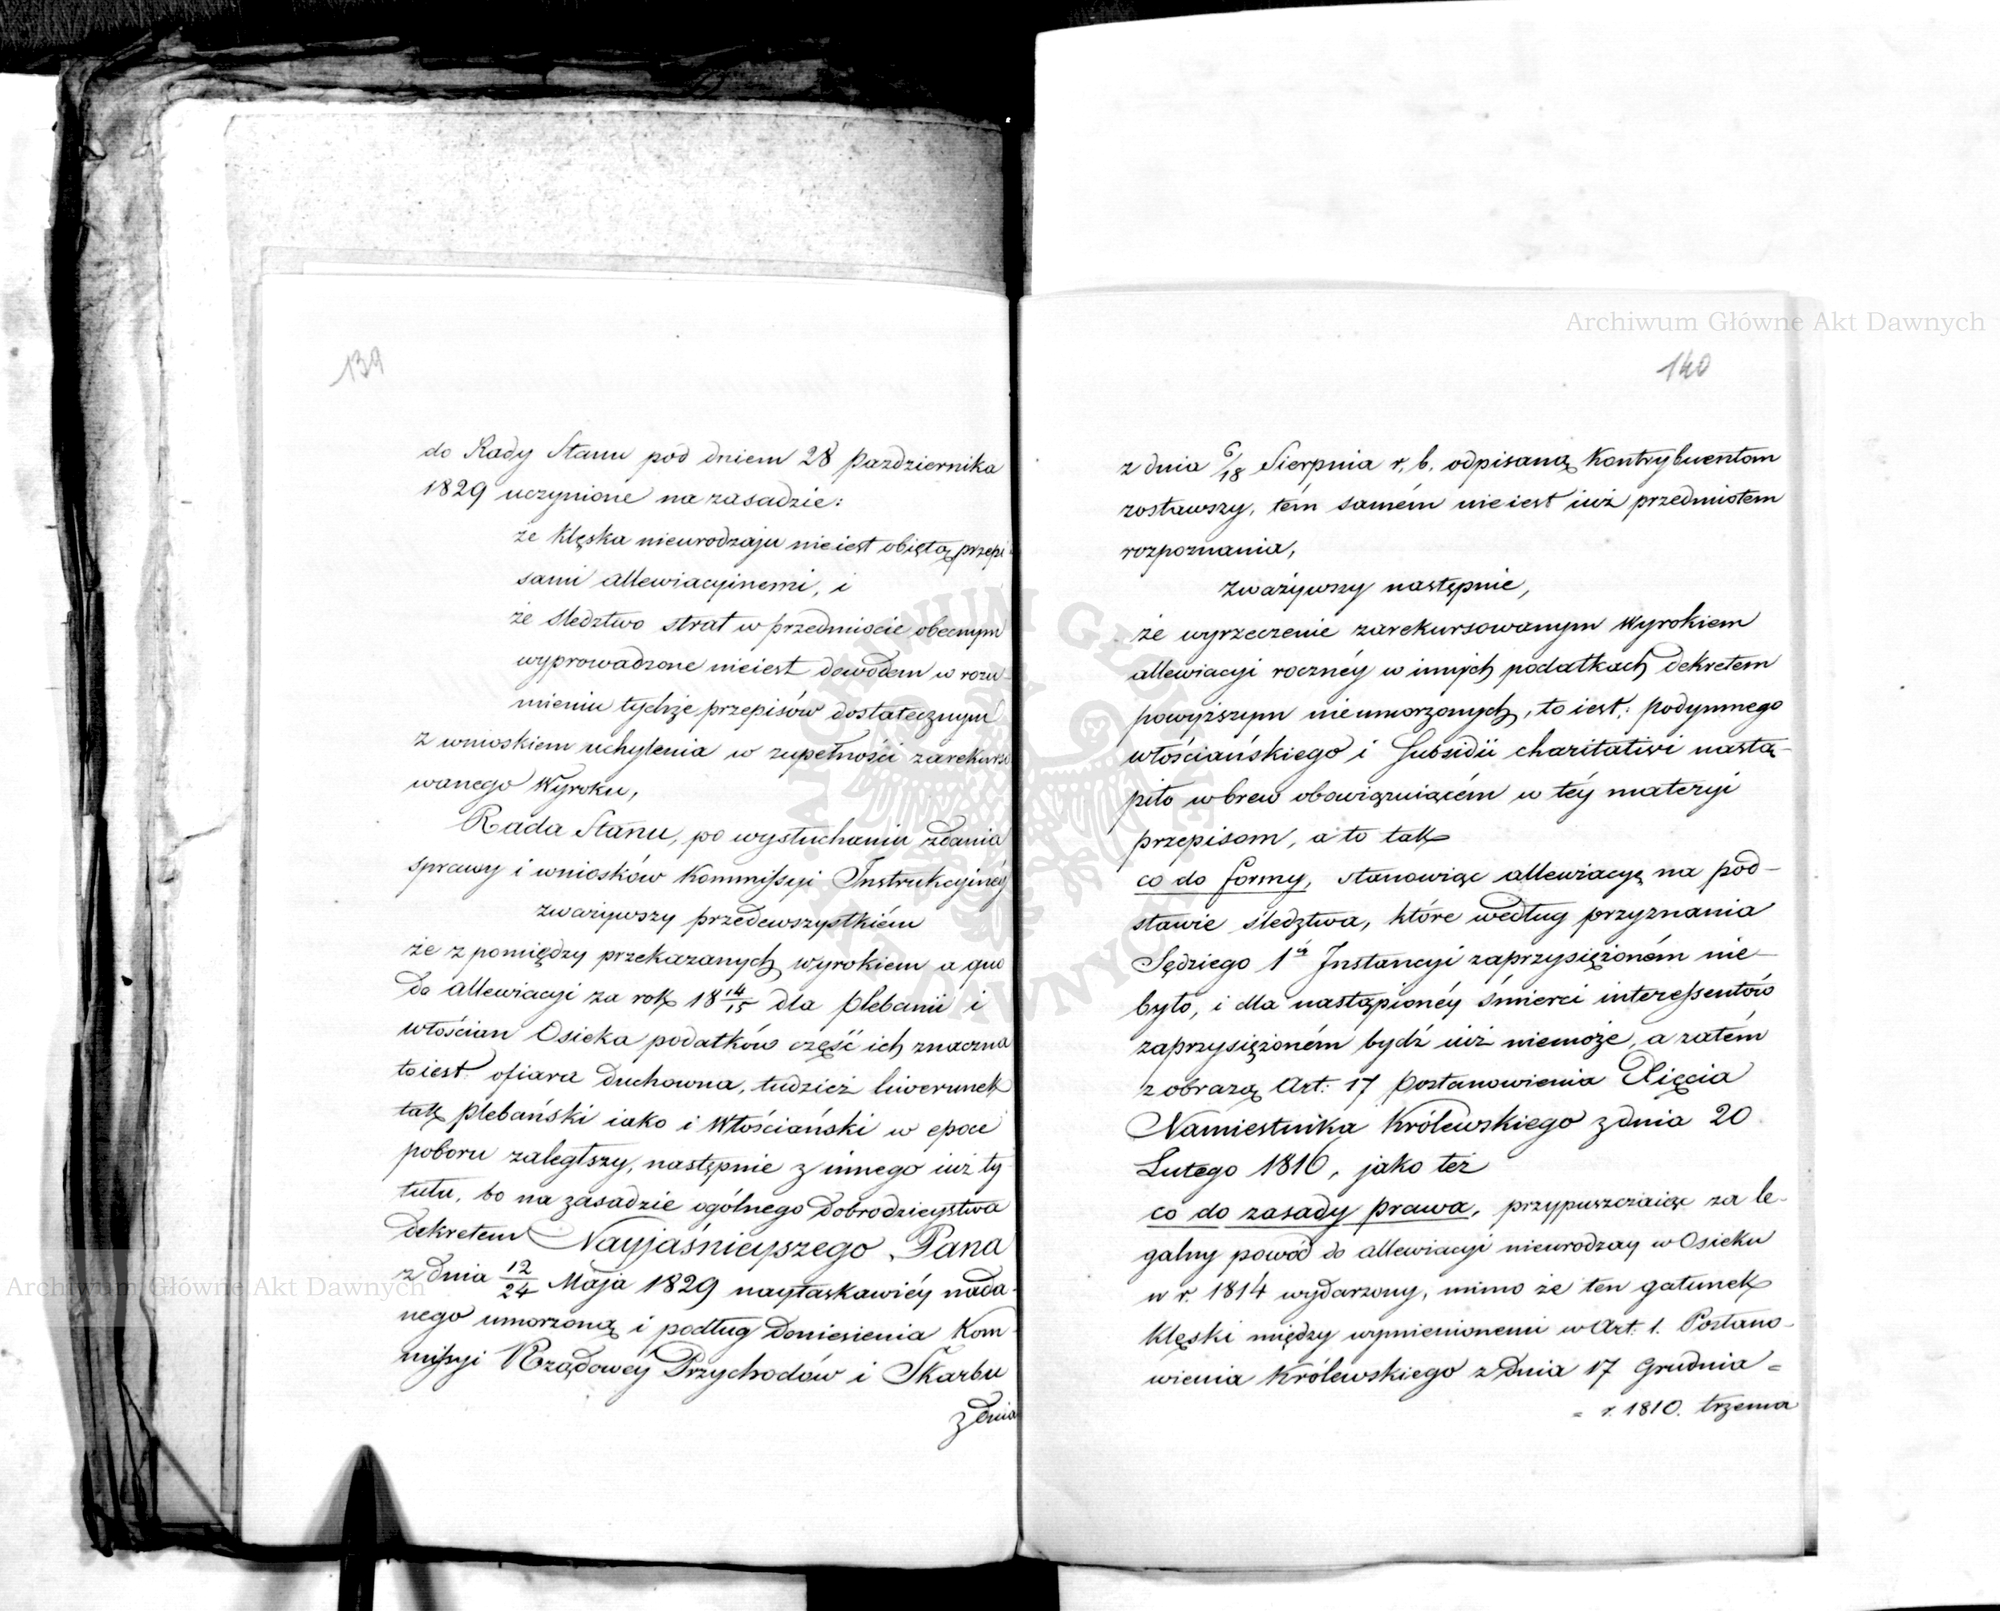 139
do Rady Stanu pód dniem 28 Pazdziernika
1829 uczynione na zasadzie:
że klęska nieurodzaju nieiest obiętą przepi-
sami allewiacyinemi, i
że śledztwo strat w przedmiocie obecnym
wyprowadzone nieiest dowodem w rozu-
mieniu tychże przepisów dostatecznym
z wnioskiem uchylenia w zupełności zarekurso
wanego Wyroku,
Rada Stanu, po wysłuchaniu zdania
sprawy i wniosków Kommissyi Instrukcyinéy
zważywszy przedewszystkiém
że z pomiędzy przekazanych wyrokiem a quo
do allewiacyi za rok 18 14/15 dla plebanii i
włościan Osieka podatków część ich znaczna
toiest: ofiara duchowna, tudzież liwerunek
tak plebański iako i Włościański w epoce
poboru zaległszy, następnie z innego iuż ty
tułu, bo na zasadzie ogólnego dobrodzieystwa
dekretem Nayjaśnieyszego Pana
z dnia 12/24 Maja 1829 nayłaskawiéy nada-
nego umorzoną i podług doniesienia Kom-
missyi Rządowey Przychodów i Skarbu
z dnia
140
z dnia 6/18 Sierpnia r. b. odpisaną Kontrybuentom
zostawszy, tém samém nieiest iuż przedmiotem
rozpoznania,
zważywszy następnie,
że wyrzeczenie zarekursowanym Wyrokiem
allewiacyi rocznéy w innych podatkach dekretem
powyższym nieumorzonych, to iest: podymnego
włościańskiego i Subsidii charitativi nastą-
piło wbrew obowięzuiącém w téy materyi
przepisom, a to tak
co do formy, stanowiąc allewiacyę na pod-
stawie śledztwa, które według przyznania
Sędziego 1éj Instancyi zaprzysiężoném nie-
było, i dla nastąpionéy śmierci interessentów
zaprzysiężoném bydź iuż niemoże, a zatém
z obrazą Art: 17 postanowienia Xięcia
Namiestnika Królewskiego z dnia 20
Lutego 1816, jako też
co do zasady prawa, przypuszczaiąc za le-
galny powód do allewiacyi nieurodzay w Osieku
w r. 1814 wydarzony, mimo że ten gatunek
klęski między wymienionemi w Art: 1. Postano-
wienia Królewskiego z dnia 17 Grudnia =
= r. 1810. trzema
Archiwum Główne Akt Dawnych
Archiwum Główne Akt Dawnych
ARCHIWUM GŁÓWNE AKT DAWNYCH